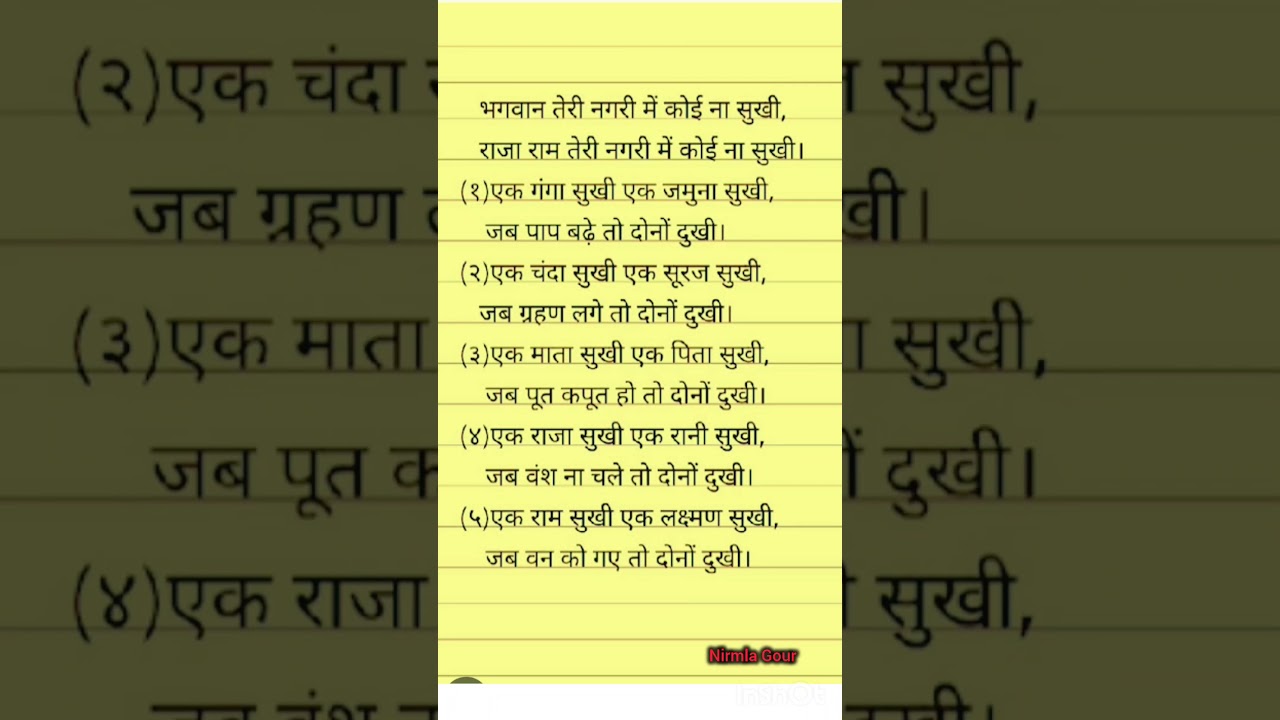 भगवान तेरी नगरी में कोई ना सुखी,
राजा राम तेरी नगरी में कोई ना सुखी।
(१)एक गंगा सुखी एक जमुना सुखी,
जब पाप बढ़े तो दोनों दुखी।
(२)एक चंदा सुखी एक सूरज सुखी,
जब ग्रहण लगे तो दोनों दुखी।
(३)एक माता सुखी एक पिता सुखी,
जब पूत कपूत हो तो दोनों दुखी।
(४)एक राजा सुखी एक रानी सुखी,
जब वंश ना चले तो दोनों दुखी।
(५)एक राम सुखी एक लक्ष्मण सुखी,
जब वन को गए तो दोनों दुखी।
Nirmla Gour
InShOt